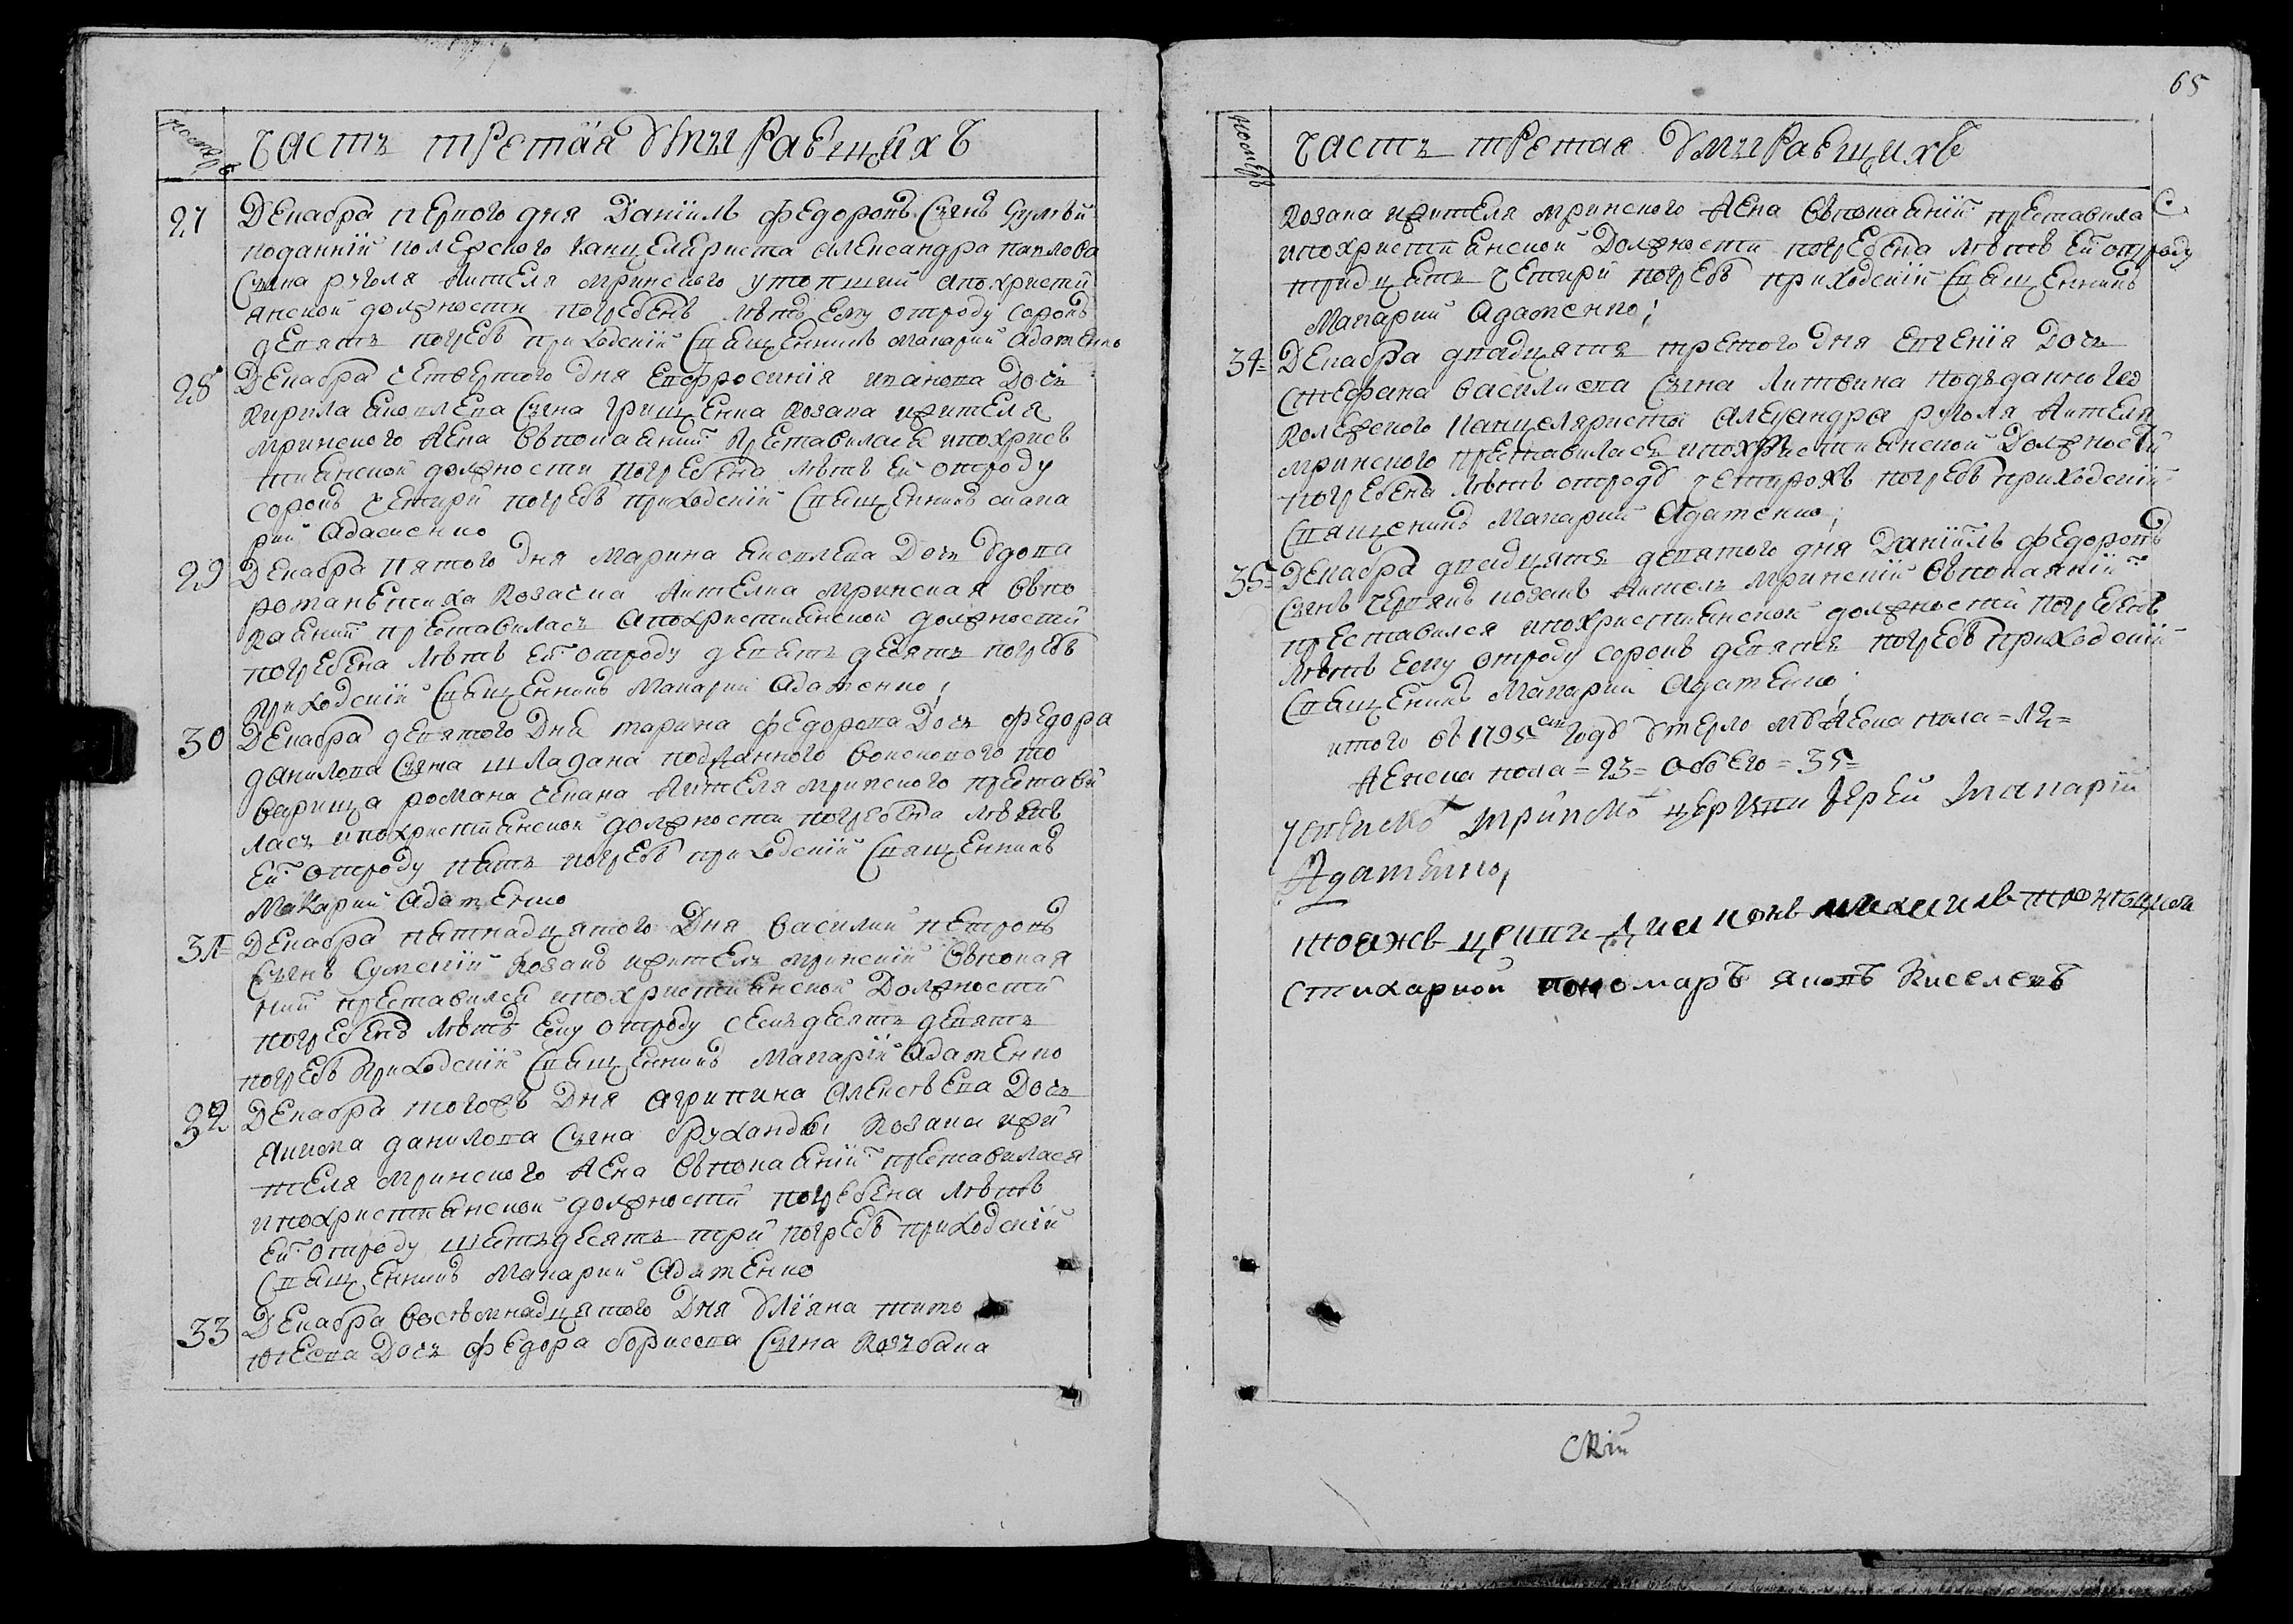 65
номеръ
Часть третая умыравщихъ
27 Декабра первого дня Данїилъ Федоровъ сынъ
поданній колежского канцеляриста Александра Павлова
сына Руголя жителя мринского утопший а по христи
анской должности погребенъ лѣтъ ему отроду сорокъ
девять погребъ приходскій священникъ Макарий Адаменко
28 Декабра четвертого дня Евфросинія Иванова дочь
Кирила Яковлева сына Грищенка козака жителя
мринского жена въ покаяний преставилася и по хрис
тиянской должности погребена лѣтъ ей отроду
сорокъ четири погребъ приходскій священникъ Мака
рий Адаменко
29 Декабра пятого дня Марина Яковлева дочь вдова
Романенкиха козачка жителка мринская въ по
каяний преставилась а по християнской должностй
погребена лѣтъ ей отроду девять десять погребъ
приходскій священникъ Макарий Адаменко;
30 Декабра девятого дня Марина Федорова дочь Федора
Данилова сына Шладана подданного войскового то
варища Романа жителя мринского престави
лась и по християнской должности погребена лѣтъ
ей отроду пять погребъ приходскій священникъ
Макарий Адаменко
31 Декабра пятнадцятого дня Василий Петровъ
сынъ Сумскій козакъ житель мринскій въ покая
ний преставился и по християнской должностй
погребенъ лѣтъ ему отроду семьдесять девять
погребъ приходскій священникъ Макарій Адаменко
32 Декабра того жъ дня Агрипина Алексѣева дочь
Якима Данилова сына Бруханды козака жи
теля мринского жена въ покаяній преставилася
и по християнской должностй погребена лѣтъ
ей отроду шестьдесять три погребъ приходскій
священникъ Макарий Адаменко
33 Декабра восѣмнадцятого дня Улїяна Тимо
феева дочь Федора Борисова сына Козъбана
номеръ
Часть третая умыравщихъ
козака жителя мринского жена въ покаяній преставила с.
и по християнской должности погребена лѣтъ ей отроду
тридцять четири погребъ приходскій священникъ
Макарий Адаменко;
34 Декабра двадцять третого дня Евгенія дочь
Стефана Василиева сына Литвина подъданного
колежского канцеляриста Александра Руголя жителя
мринского преставилась и по християнской должностй
погребена лѣтъ отроду четирохъ погребъ приходскій
священикъ Макарий Адаменко;
35 Декабра двадцять девятого дня Данїилъ Федоровъ
сынъ Червякъ козакъ житель мринскій въ покаяній
преставился и по християнской должностй погребенъ
лѣтъ ему отроду сорокъ девять погребъ приходскій
священикъ Макарий Адаменко;
итого въ 1795 годѣ умерло мужеска пола = 12 =
женска пола = 23 = обоего = 35 =
Успенской Мринской церкви Іерей Макарій
Адаменко,
тояжъ церкви Михаилъ
стихарной пономаръ Яковъ Киселевъ
скій